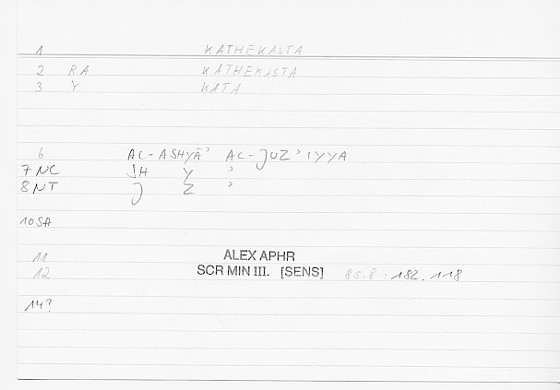 1 KATHEKASTA
2 RA KATHEKASTA
3 Y KATA
6 AL-ASHYĀ' AL-JUZ'IYYA
7 NC SH Y '
8 NT J Z '
10 SA
11 ALEX APHR
12 SCR MIN III. [SENS] 85.8 : 182.118
14?